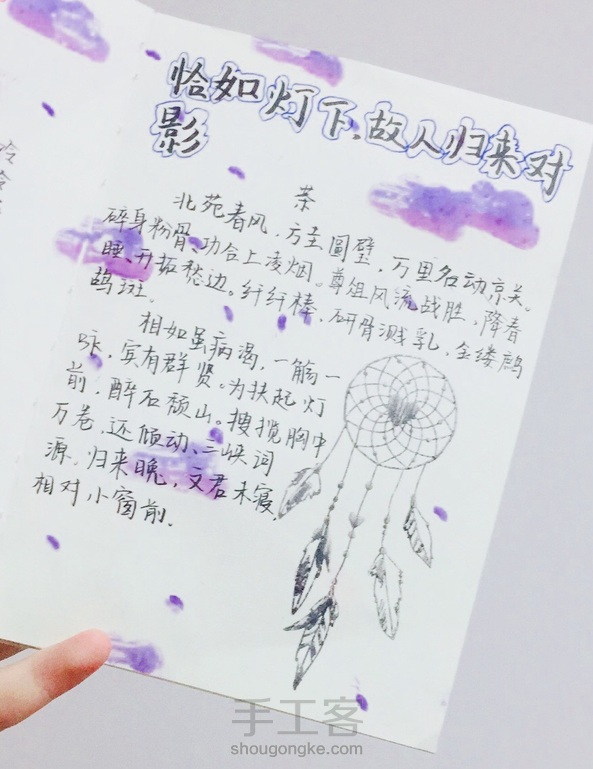 恰如灯下,故人归来对
影
茶
北苑春风,方圭圓璧,万里名动京关。
碎身粉骨、功合上凌烟。尊俎风流战胜,降春
睡、开拓愁边。纤纤棒,研膏溅乳,金缕鹧
鸪斑。
相如虽病渴,一觞一
咏,宾有群贤。为扶起灯
前,醉玉颓山。搜搅胸中
万卷,还倾动、三峡词
源,归来晚,文君未寝,
相对小窗前.
手工客
shougongke.com